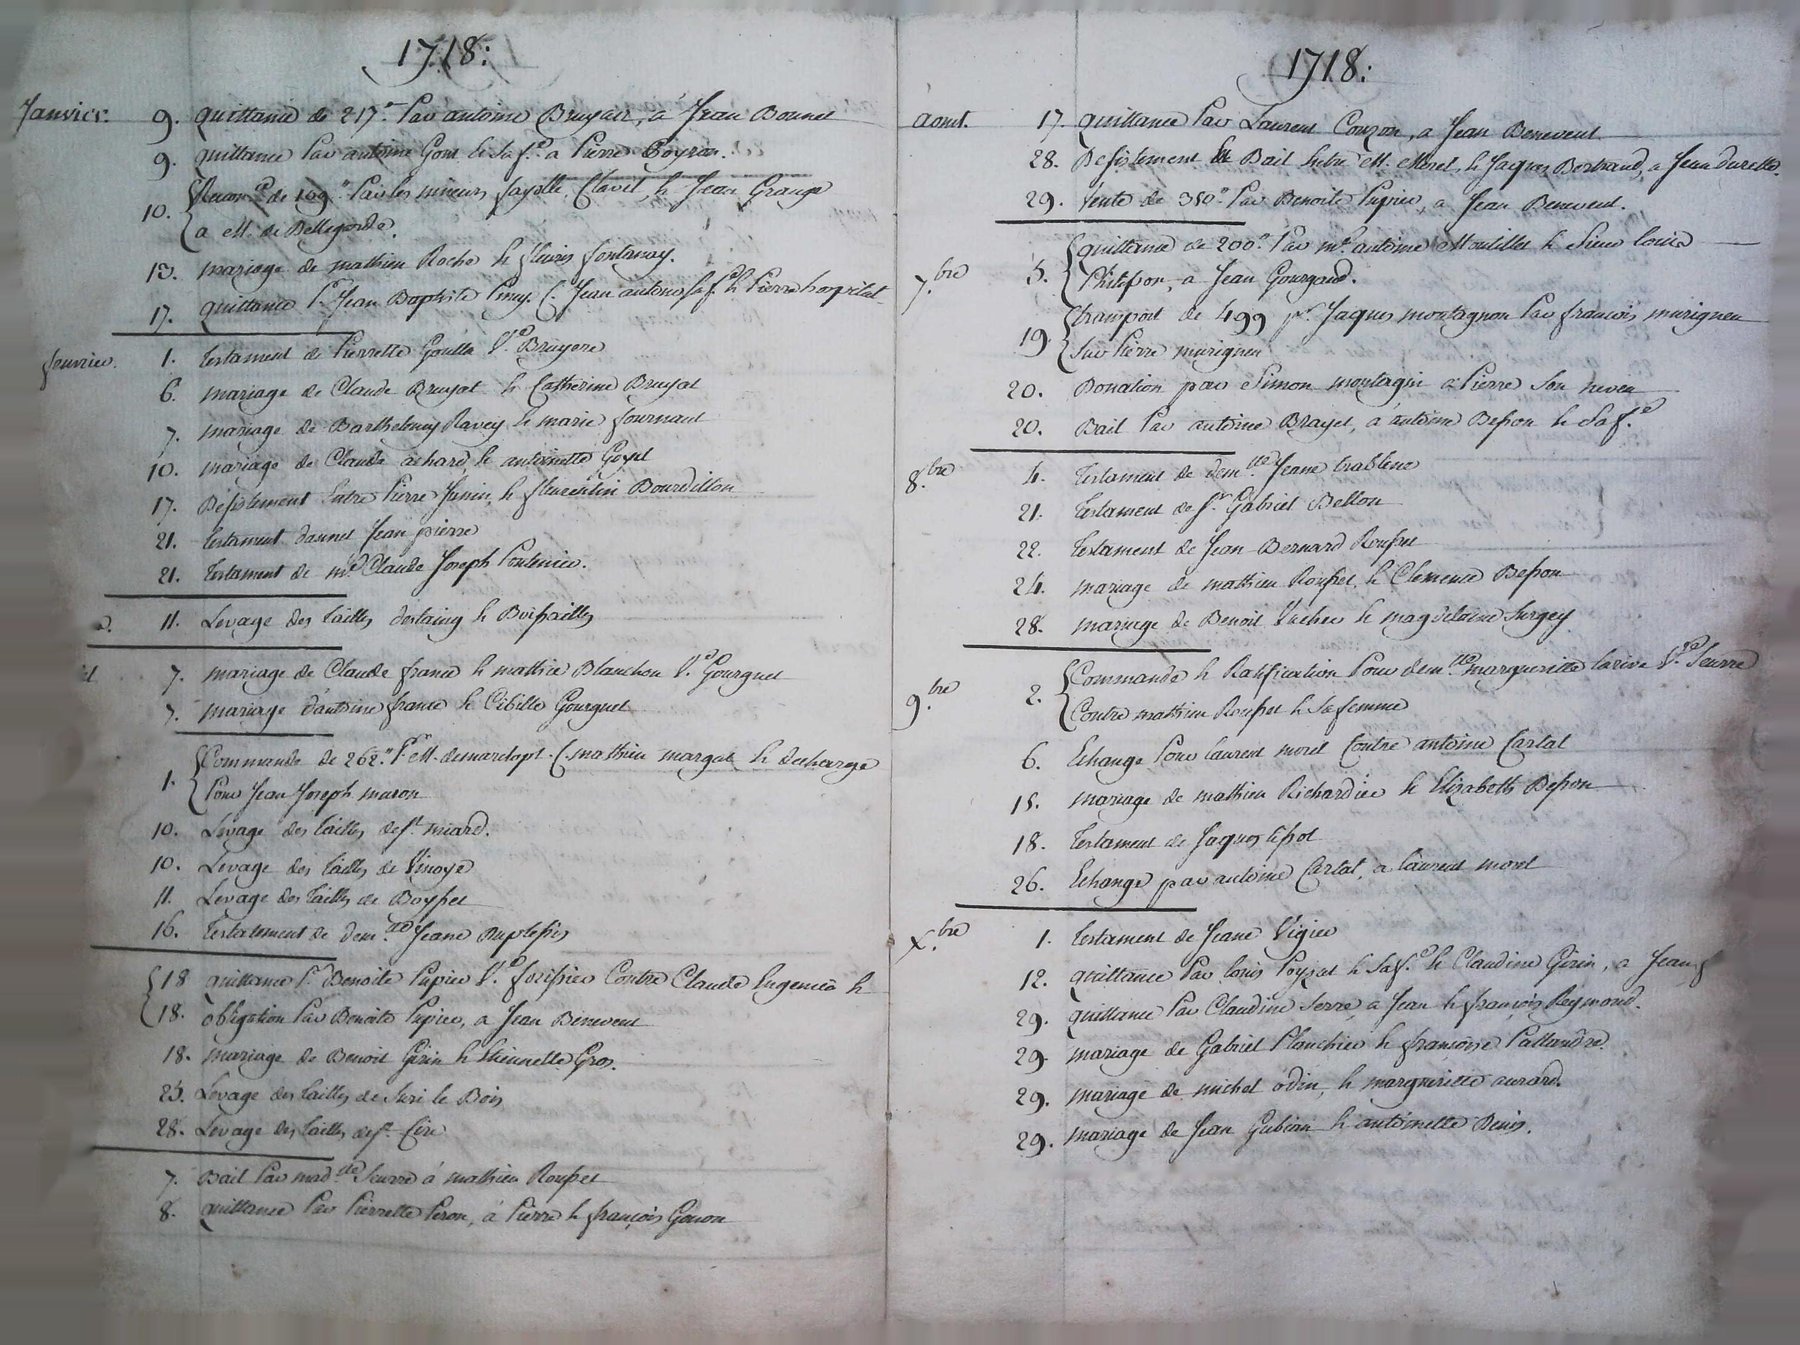 1718:
Janvier. 9. quittance de 217.# Par antoine Bruyair, a Jean Bonnet
9. quittance Par antoine Gont & sa fe. a Pierre Poyron.
10. de 109.# Par les mineurs fayolle, Clavel, & Jean Grange
a M. de Bellegarde.
13. mariage de mathieu Roche & fleurie fontanay.
17. quittance pr. Jean Baptiste Piny C. Jean antoine sa fe. & Pierre hospital
fevrier. 1. Testament de Pierrette Goutte Ve. Bruyere
6. mariage de Claude Bruyat & Catherine Bruyat
7. mariage de Barthelemy Ravey & marie fournant
10. mariage de Claude achard & antoinette Goyet
17. Desistement Entre Pierre Janin & fleurentin Bourdillon
21. Testament dannet Jean pierre
21. Testament de me. Claude Joseph Pontenier.
11. Levage des tailles destaing & Boissailles
7. mariage de Claude france & mathie Blanchon Ve. Gourguet
7. mariage d'antoine france & Cibille Gourguet
1. Commande de 262.# pr M. demarclopt C. mathieu margot & decharge
Pour Jean Joseph maron
10. Levage des tailles de st. miard.
10. Levage des tailles de Vinoye
11. Levage des tailles de Boysset
16. Testatement de demlle. Jeane Duplessis
18 quittance pr. Benoite Pupier Ve. forissier Contre Claude Eugenieu &
18. obligation Par Benoite Pupier, a Jean Benevent
18. mariage de Benoit Girin & Etiennette Gros.
25. Levage des tailles de Suri le Bois
28. Levage des tailles de st. Cire
7. Bail Par madlle. Seurre á mathieu Rousset
8. quittance Par Pierrette Peron, á Pierre & françois Gonon
1718:
aoust. 17. quittance Par Laurent Couzon, a Jean Benevent
28. Desistement de Bail Entre M. Morel, & Jaques Bertrand, a Jean durelle.
29. Vente de 350.# Par Benoite Pupier, a Jean Benevent.
7.bre 5. quittance de 200.# Par me. antoine Moutillet & Sieur louis
Philipon, a Jean Gourgaud.
19. transport de 499 pr. Jaques montagnon Par francois murigneu
sur Pierre murigneu
20. Donation par Simon montagni a Pierre son neveu
20. Bail Par antoine Brayet, á antoine Besson & sa fe.
8.bre 4. Testament de demlle. Jeane trablene
21. Testament de sr. Gabriel Bellon
22. Testament de Jean Bernard Rousset
24. mariage de mathieu Rousset & Clemence Besson
28. mariage de Benoit Vacher & magdelaine Surgey
9.bre 2. Commande & Ratification Pour demlle. margueritte larive Ve. Seurre
Contre mathieu Rousset & sa femme
6. Echange Pour laurent morel Contre antoine Cartal
15. mariage de mathieu Richardier & Elizabeth Besson
18. Testament de Jaques tissot
26. Echange par antoine Cartal, a laurent morel
X.bre 1. Testament de Jeane Vigier
12. quittance Par louis Poysat & sa fe. & Claudine Girin, a Jean
29. quittance Par Claudine Serre a Jean & françois Reymond.
29. mariage de Gabriel Planchier & francoise Pallandre.
29. mariage de michel odin, & margueritte aurard.
29. mariage de Jean Gubian & antoinette Denis.